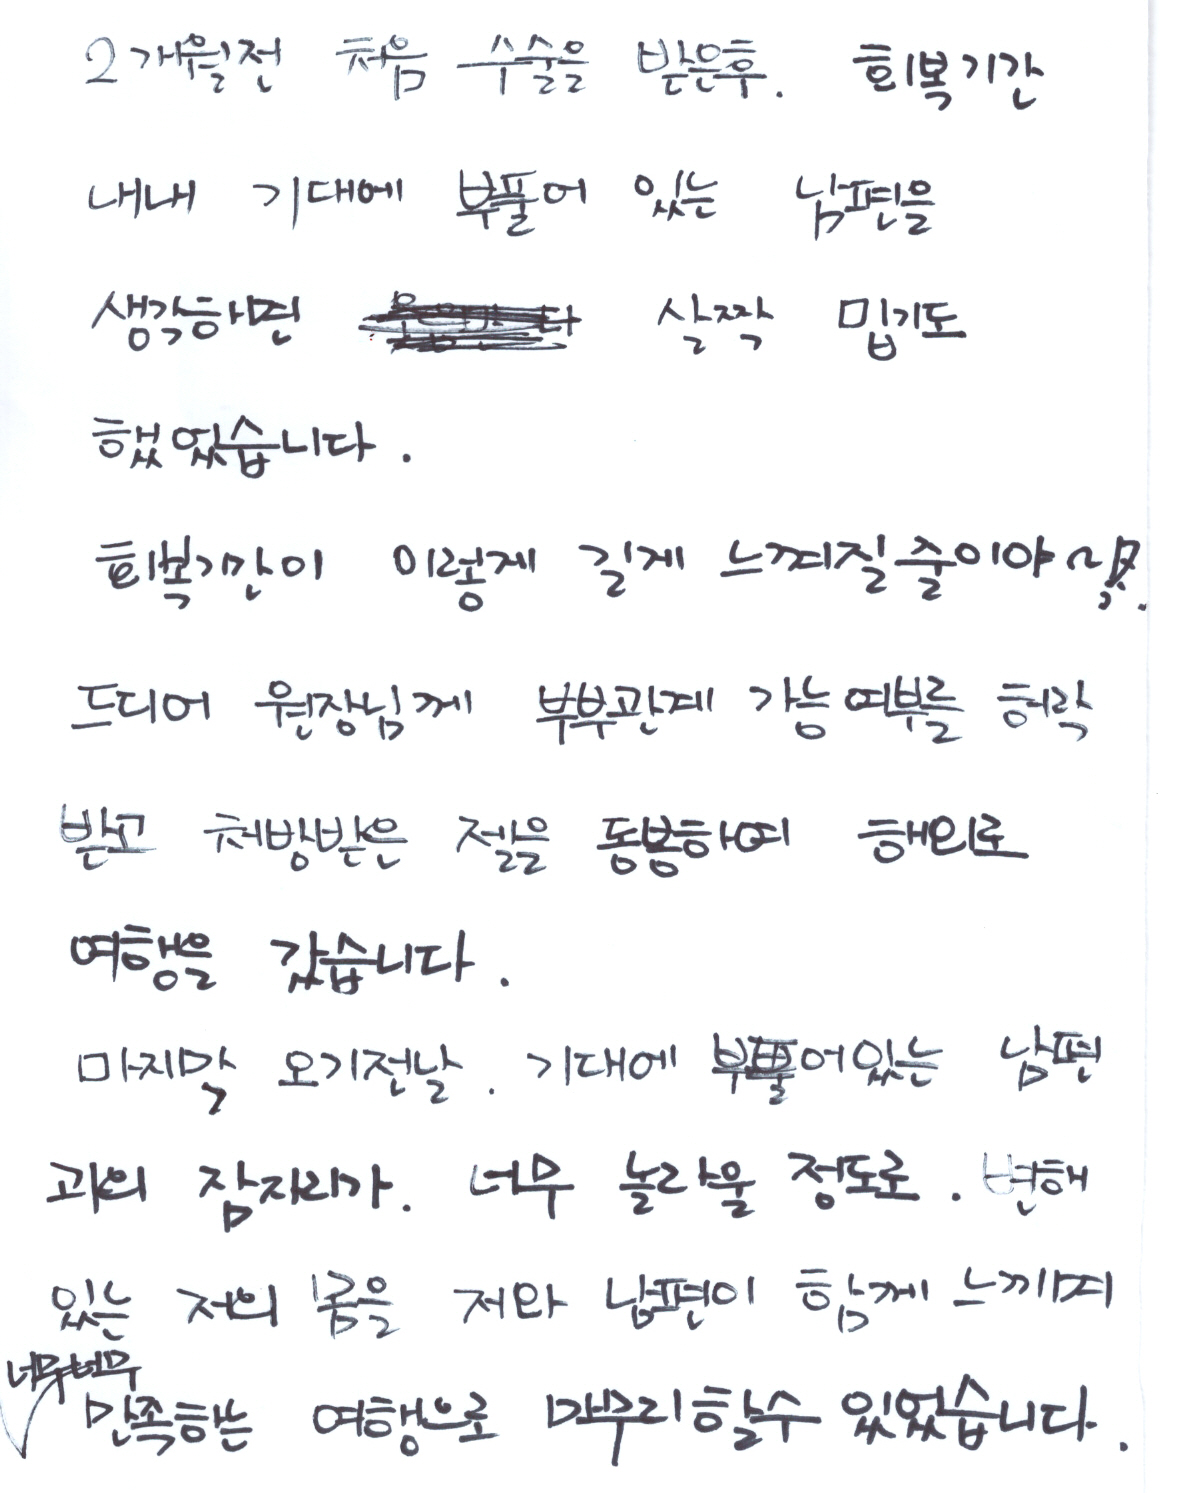 2개월전 처음 수술을 받은후. 회복기간
내내 기대에 부풀어 있는 남편을
생각하면 살짝 밉기도
했었습니다.
회복기간이 이렇게 길게 느껴질줄이야~
드디어 원장님께 부부관계 가능여부를 허락
받고 처방받은 젤을 동봉하여 해외로
여행을 갔습니다.
마지막 오기전날. 기대에 부풀어있는 남편
과의 잠자리가. 너무 놀라울 정도로. 변해
있는 저의 몸을 저와 남편이 함께 느끼며
너무너무
만족하는 여행으로 마무리할수 있었습니다.